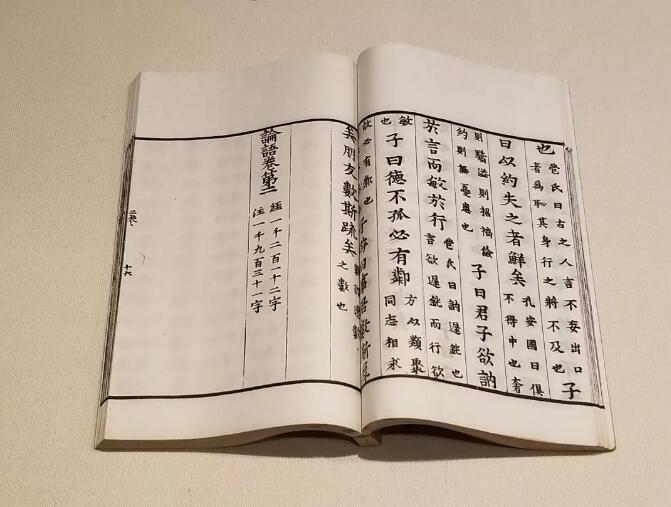 也
苞氏曰古之人言不妄出口
者為恥其身行之將不及也
子
曰以約失之者鮮矣
孔安國曰俱
不得中也奢
則驕溢則招禍儉
約則無憂患也
子曰君子欲訥
扵言而敏扵行
苞氏曰訥遲鈍也
言欲遲鈍而行欲
敏
也
子曰德不孤必有鄰
方以類聚
同志相求
故必有鄰也
矣朋友數斯疏矣
之數也
論語卷第二
經一千二百一十二字
注一千九百三十一字
十六